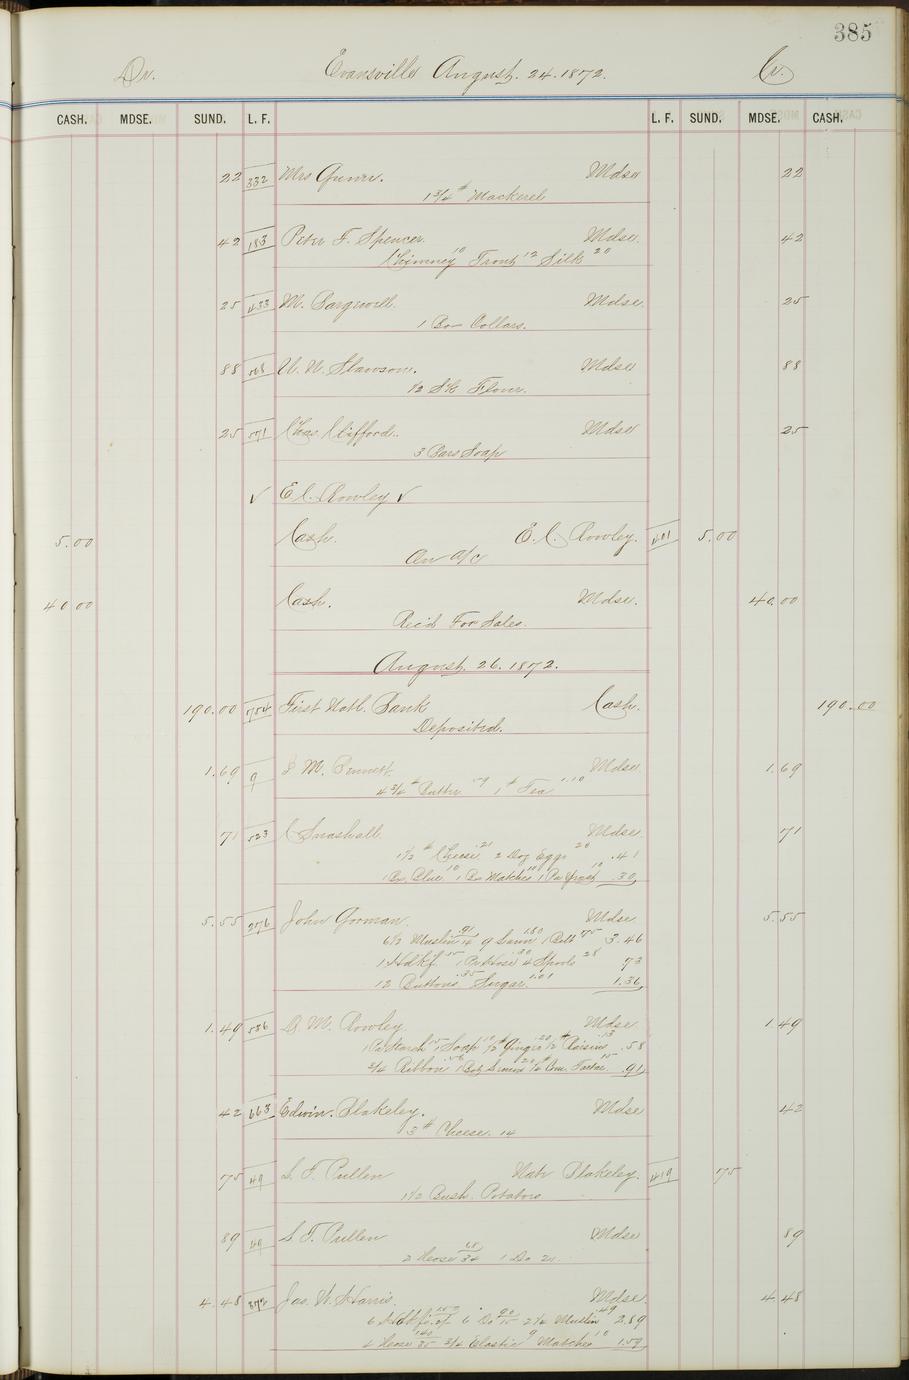 385
Dr. Evansville August. 24. 1872. Cr.
CASH. MDSE. SUND. L. F. L. F. SUND. MDSE. CASH.
22 332 Mrs Mdse 22
1 3/4 # Mackerel
42 183 Peter F. Spencer. Mdse. 42
Chimney 10 Trout 12 Silk 20
25 433 M. Mdse. 25
1 Box Collars.
88 Mdse 88
1/2 Sk Flour.
25 571 Chas Clifford. Mdse 25
3 Bars Soap
✓ E C. Rowley ✓
5.00 Cash. E. C. Rowley. 401 5.00
On a/c
40 00 Cash. Mdse. 40.00
Rec'd For Sales.
August. 26. 1872.
190.00 754 First Natl. Bank Cash. 190.00
Deposited.
1.69 9 M. Bennett Mdse 1.69
4 3/4 # Butter 59 1 # Tea 1.10
71 523 C Snashall Mdse 71
1 1/2 # Cheese .21 2 Doz Eggs 20 .41
1 Bx Blue 10 1 Bx Matches 10 1 Pa Yeast 10 .30
5.55 276 John Gorman. Mdse 5.55
6 1/2 Muslin .91/14 9 1.80 1 Belt 75 3.46
1 Hdkf. 15 1 Pr Hose .30 4 Spools 28 73
12 Buttons .35 Sugar 1.01 1.36
1.49 586 D. M. Rowley Mdse 1.49
1 Pa Starch 15 1 Soap 10 1/2 # Ginger .20 1/2 # Raisins .13 .58
3/4 Ribbon .56 1 Bot 20 1/4 # Crm. Tartar 15 .91
42 663 Edwin. Blakeley. Mdse 42
3 # Cheese. 14
75 49 S. F. Pullen Natr Blakeley. 419 75
1 1/2 Bush. Potatoes
89 49 S. F. Pullen Mdse 89
2 Hose 68/34 1 Do 21.
4.48 Jas. W. Harris. Mdse. 4.48
6 Hdkfs. 6 Do 90/15 2 1/2 Muslin .49 2.89
4 Hose 140/35 3/4 Elastic 9 Matches 10 1.59